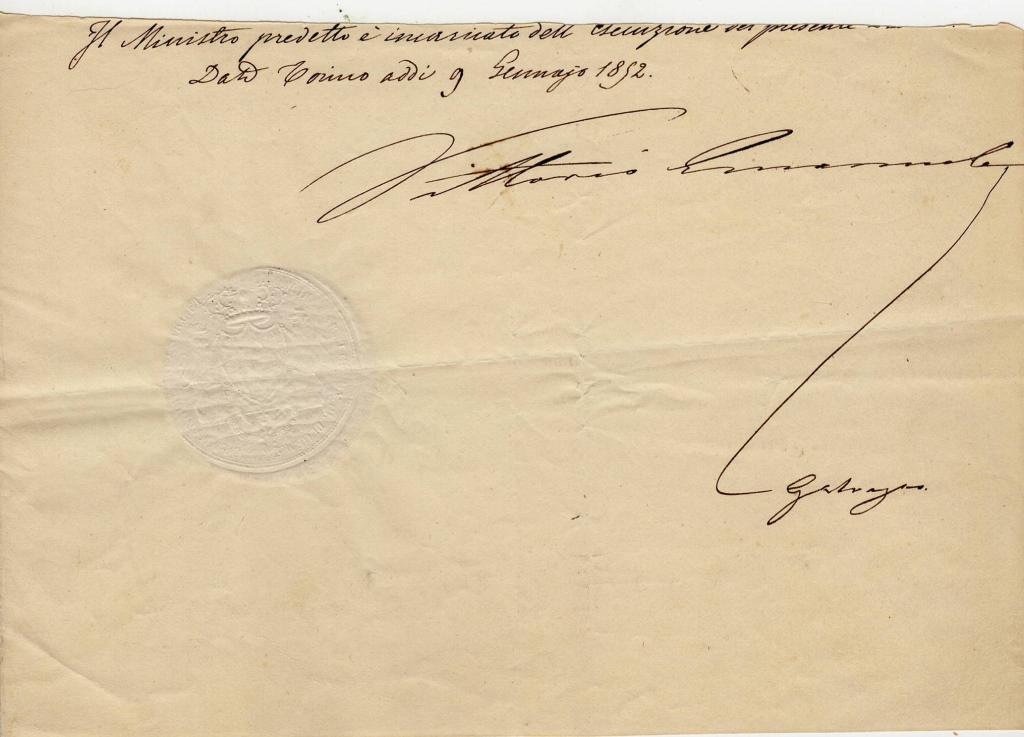 Il Ministro predetto è incaricato dell' esecuzione del presente
Dat. Torino addì 9 Gennajo 1852.
Vittorio Emanuele
Galvagno